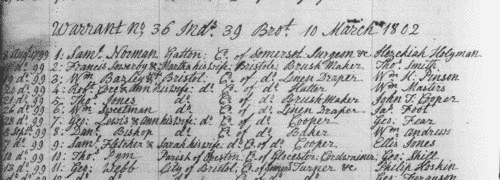 Warrant No. 36 Indr. 39 Brot. 10 March 1802
1: Saml. Norman Yatton Co. of Somerset Surgeon & Hezekiah Holyman
2: Francis & Martha his wife: Bristol: Brush Maker Thos. Smith
3: Wm. Bristol Co. of do. Linen Draper Wm. K. Pinson
99 4: Robt. & Ann his wife do. Co. of do. Hatter Wm. Masters
99 5: Thos. Jones do. C. of do. Brush Maker John T. Cooper
99 6: Wm. Sweetman do. C. of do. Linen Draper Jas. Foot
do. 99 7: Geo: Lewis & Ann his wife: do. C. of do. Cooper Geo: Fear
Sept. 99 8: Danl. Bishop do. C. of do. Baker Wm. Andrews
do. 99 9: Saml. Fletcher & Sarah his wife: do. C. of do. Cooper Ellis Jones
do. 99 10: Thos. Pym Parish of Co. of Glocester: Cordwainer: Geo: Shill
do. 99 11: Geo: Webb City of Bristol, Co. of Turner &c. Philip Hoskin
Geo: Ferguson